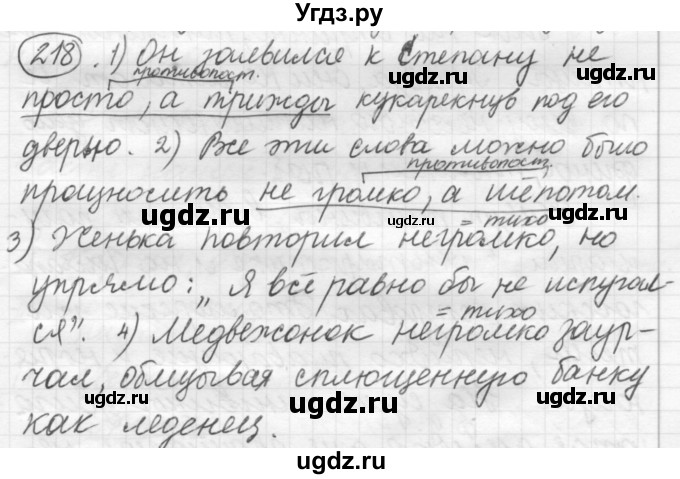 Угдз.ру
218. 1) Он заявился к Степану не
противопост.
просто, а трижды кукарекнув под его
дверью. 2) Все эти слова можно было
противопост.
произносить не громко, а шёпотом.
= тихо
3) Женька повторил негромко, но
упрямо: „Я всё равно бы не испугал-
= тихо
ся". 4) Медвежонок негромко заур-
чал, облизывая сплющенную банку
как леденец.
ugdz.ru
ugdz.ru
ugdz.ru
ugdz.ru
ugdz.ru
ugdz.ru
ugdz.ru
ugdz.ru
ugdz.ru
ugdz.ru
ugdz.ru
ugdz.ru
ugdz.ru